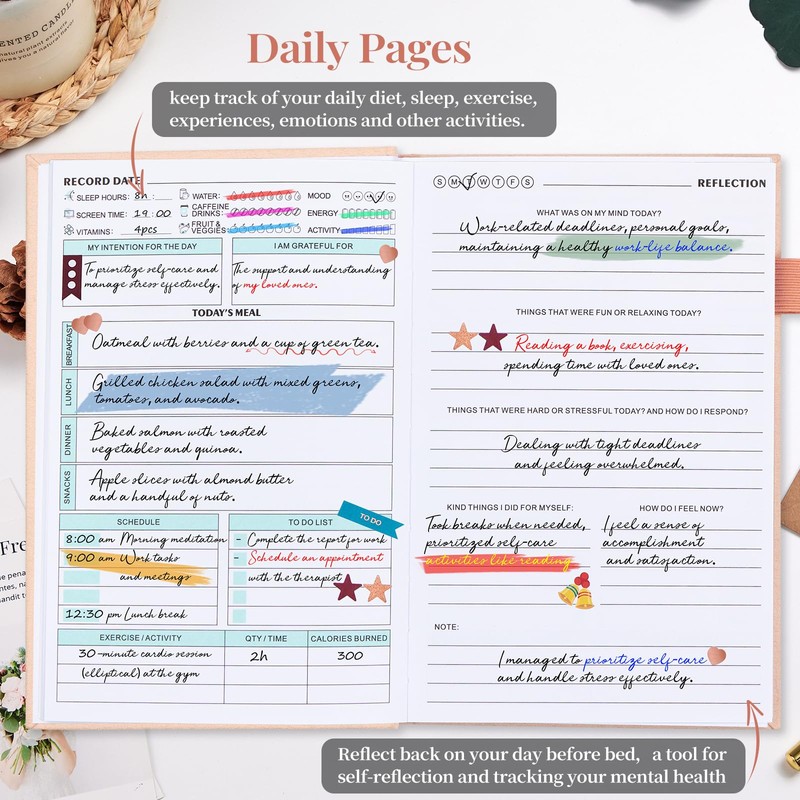 ENTED CANDL
natural plant extract
gives you a natural
Daily Pages
keep track of your daily diet, sleep, exercise,
experiences, emotions and other activities.
RECORD DATE
SLEEP HOURS: 8h
WATER:
MOOD
SCREEN TIME: 19:00
CAFFEINE
DRINKS:
ENERGY
VITAMINS: 4pcs
FRUIT &
VEGGIES
ACTIVITY
MY INTENTION FOR THE DAY
I AM GRATEFUL FOR
To prioritize self-care and
manage stress effectively.
The support and understanding
of my loved ones.
TODAY'S MEAL
BREAKFAST
Oatmeal with berries and a cup of green tea.
LUNCH
Grilled chicken salad with mixed greens,
tomatoes, and avocado.
DINNER
Baked salmon with roasted
vegetables and quinoa.
SNACKS
Apple slices with almond butter
and a handful of nuts.
SCHEDULE
8:00 am Morning meditation
9:00 am Work tasks
and meetings
12:30 pm Lunch break
TO DO LIST
TO DO
- Complete the report for work
- Schedule an appointment
with the therapist
EXERCISE / ACTIVITY QTY / TIME CALORIES BURNED
30-minute cardio session 2h 300
(elliptical) at the gym
S M T W T F S
REFLECTION
WHAT WAS ON MY MIND TODAY?
Work-related deadlines, personal goals,
maintaining a healthy work-life balance.
THINGS THAT WERE FUN OR RELAXING TODAY?
Reading a book, exercising,
spending time with loved ones.
THINGS THAT WERE HARD OR STRESSFUL TODAY? AND HOW DO I RESPOND?
Dealing with tight deadlines
and feeling overwhelmed.
KIND THINGS I DID FOR MYSELF:
Took breaks when needed,
prioritized self-care
activities like reading
HOW DO I FEEL NOW?
I feel a sense of
accomplishment
and satisfaction.
NOTE:
I managed to prioritize self-care
and handle stress effectively.
Fre
Reflect back on your day before bed, a tool for
self-reflection and tracking your mental health